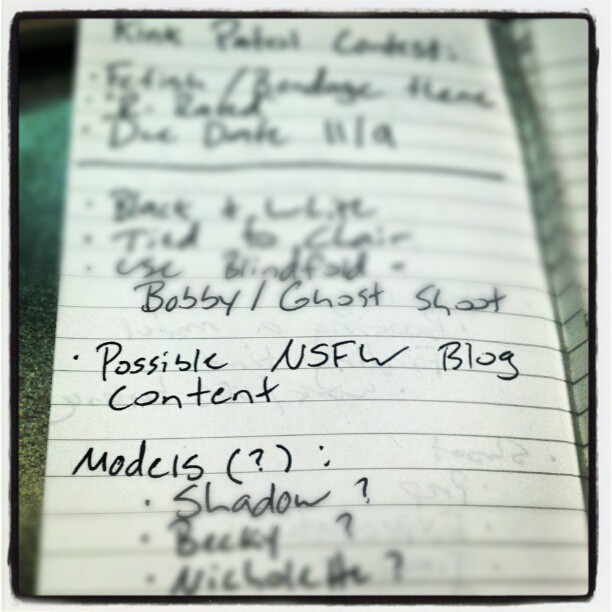 Kink Patrol Contest:
· Fetish / Bondage theme
· 'R' Rated
· Due Date 11/9
· Black & White
· Tied to Chair
· Use Blindfold -
Bobby / Ghost Shoot
· Possible NSFW Blog
Content
Models (?) :
· Shadow ?
· Becky ?
· Nicholette ?